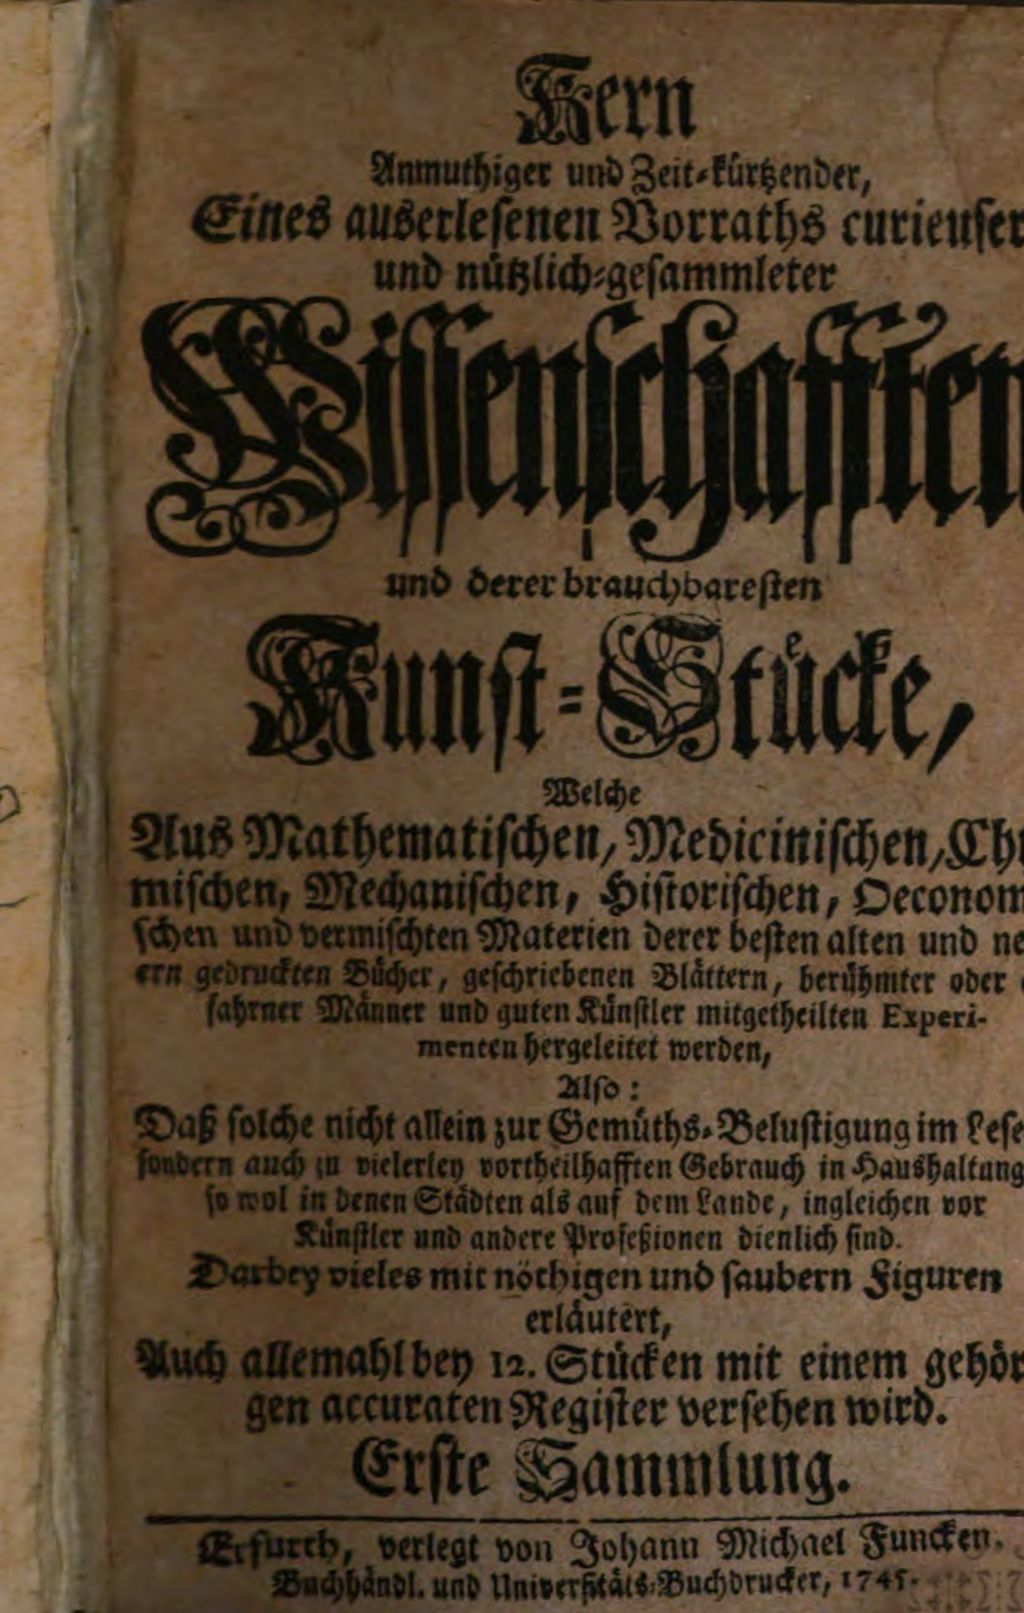 Kern
Anmuthiger und Zeit-kürtzender,
Eines auserlesenen Vorraths curieuser
und nützlich-gesammleter
Wissenschafften
und derer brauchbaresten
Kunst-Stücke,
Welche
Aus Mathematischen, Medicinischen, Chy
mischen, Mechanischen, Historischen, Oeconom
schen und vermischten Materien derer besten alten und ne
ern gedruckten Bücher, geschriebenen Blättern, berühmter oder
fahrner Männer und guten Künstler mitgetheilten Experi-
menten hergeleitet werden,
Also:
Daß solche nicht allein zur Gemüths-Belustigung im Lese
sondern auch zu vielerley vortheilhafften Gebrauch in Haushaltung
so wol in denen Städten als auf dem Lande, ingleichen vor
Künstler und andere Profeßionen dienlich sind.
Darbey vieles mit nöthigen und saubern Figuren
erläutert,
Auch allemahl bey 12. Stücken mit einem gehör
gen accuraten Register versehen wird.
Erste Sammlung.
Erfurth, verlegt von Johann Michael Funcken.
Buchhändl. und Universitäts-Buchdrucker, 1745.